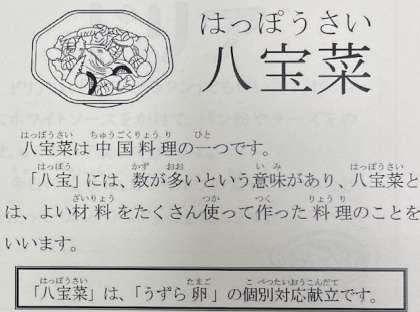 はっぽうさい
八宝菜
はっぽうさい ちゅうごくりょうり ひと
八宝菜は中国料理の一つです。
はっぽう かず おお いみ はっぽうさい
「八宝」には、数が多いという意味があり、八宝菜と
ざいりょう つか つく りょうり
は、よい材料をたくさん使って作った料理のことを
いいます。
はっぽうさい たまご こべつたいおうこんだて
「八宝菜」は、「うずら卵」の個別対応献立です。